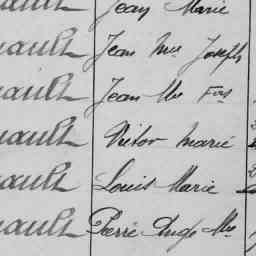 ault Jean Marie
uault Jean Mie Joseph
uault Jean Mie Fois
uault Victor Marie
uault Louis Marie
uault Pierre Ange Mie